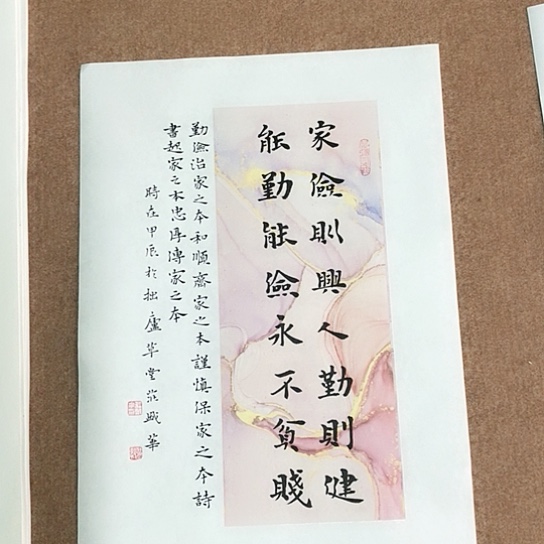 家儉則興人勤則健
能勤能儉永不貧賤
勤儉治家之本和順齋家之本謹慎保家之本詩
書起家之本忠厚傳家之本
時在甲辰於拙廬草堂